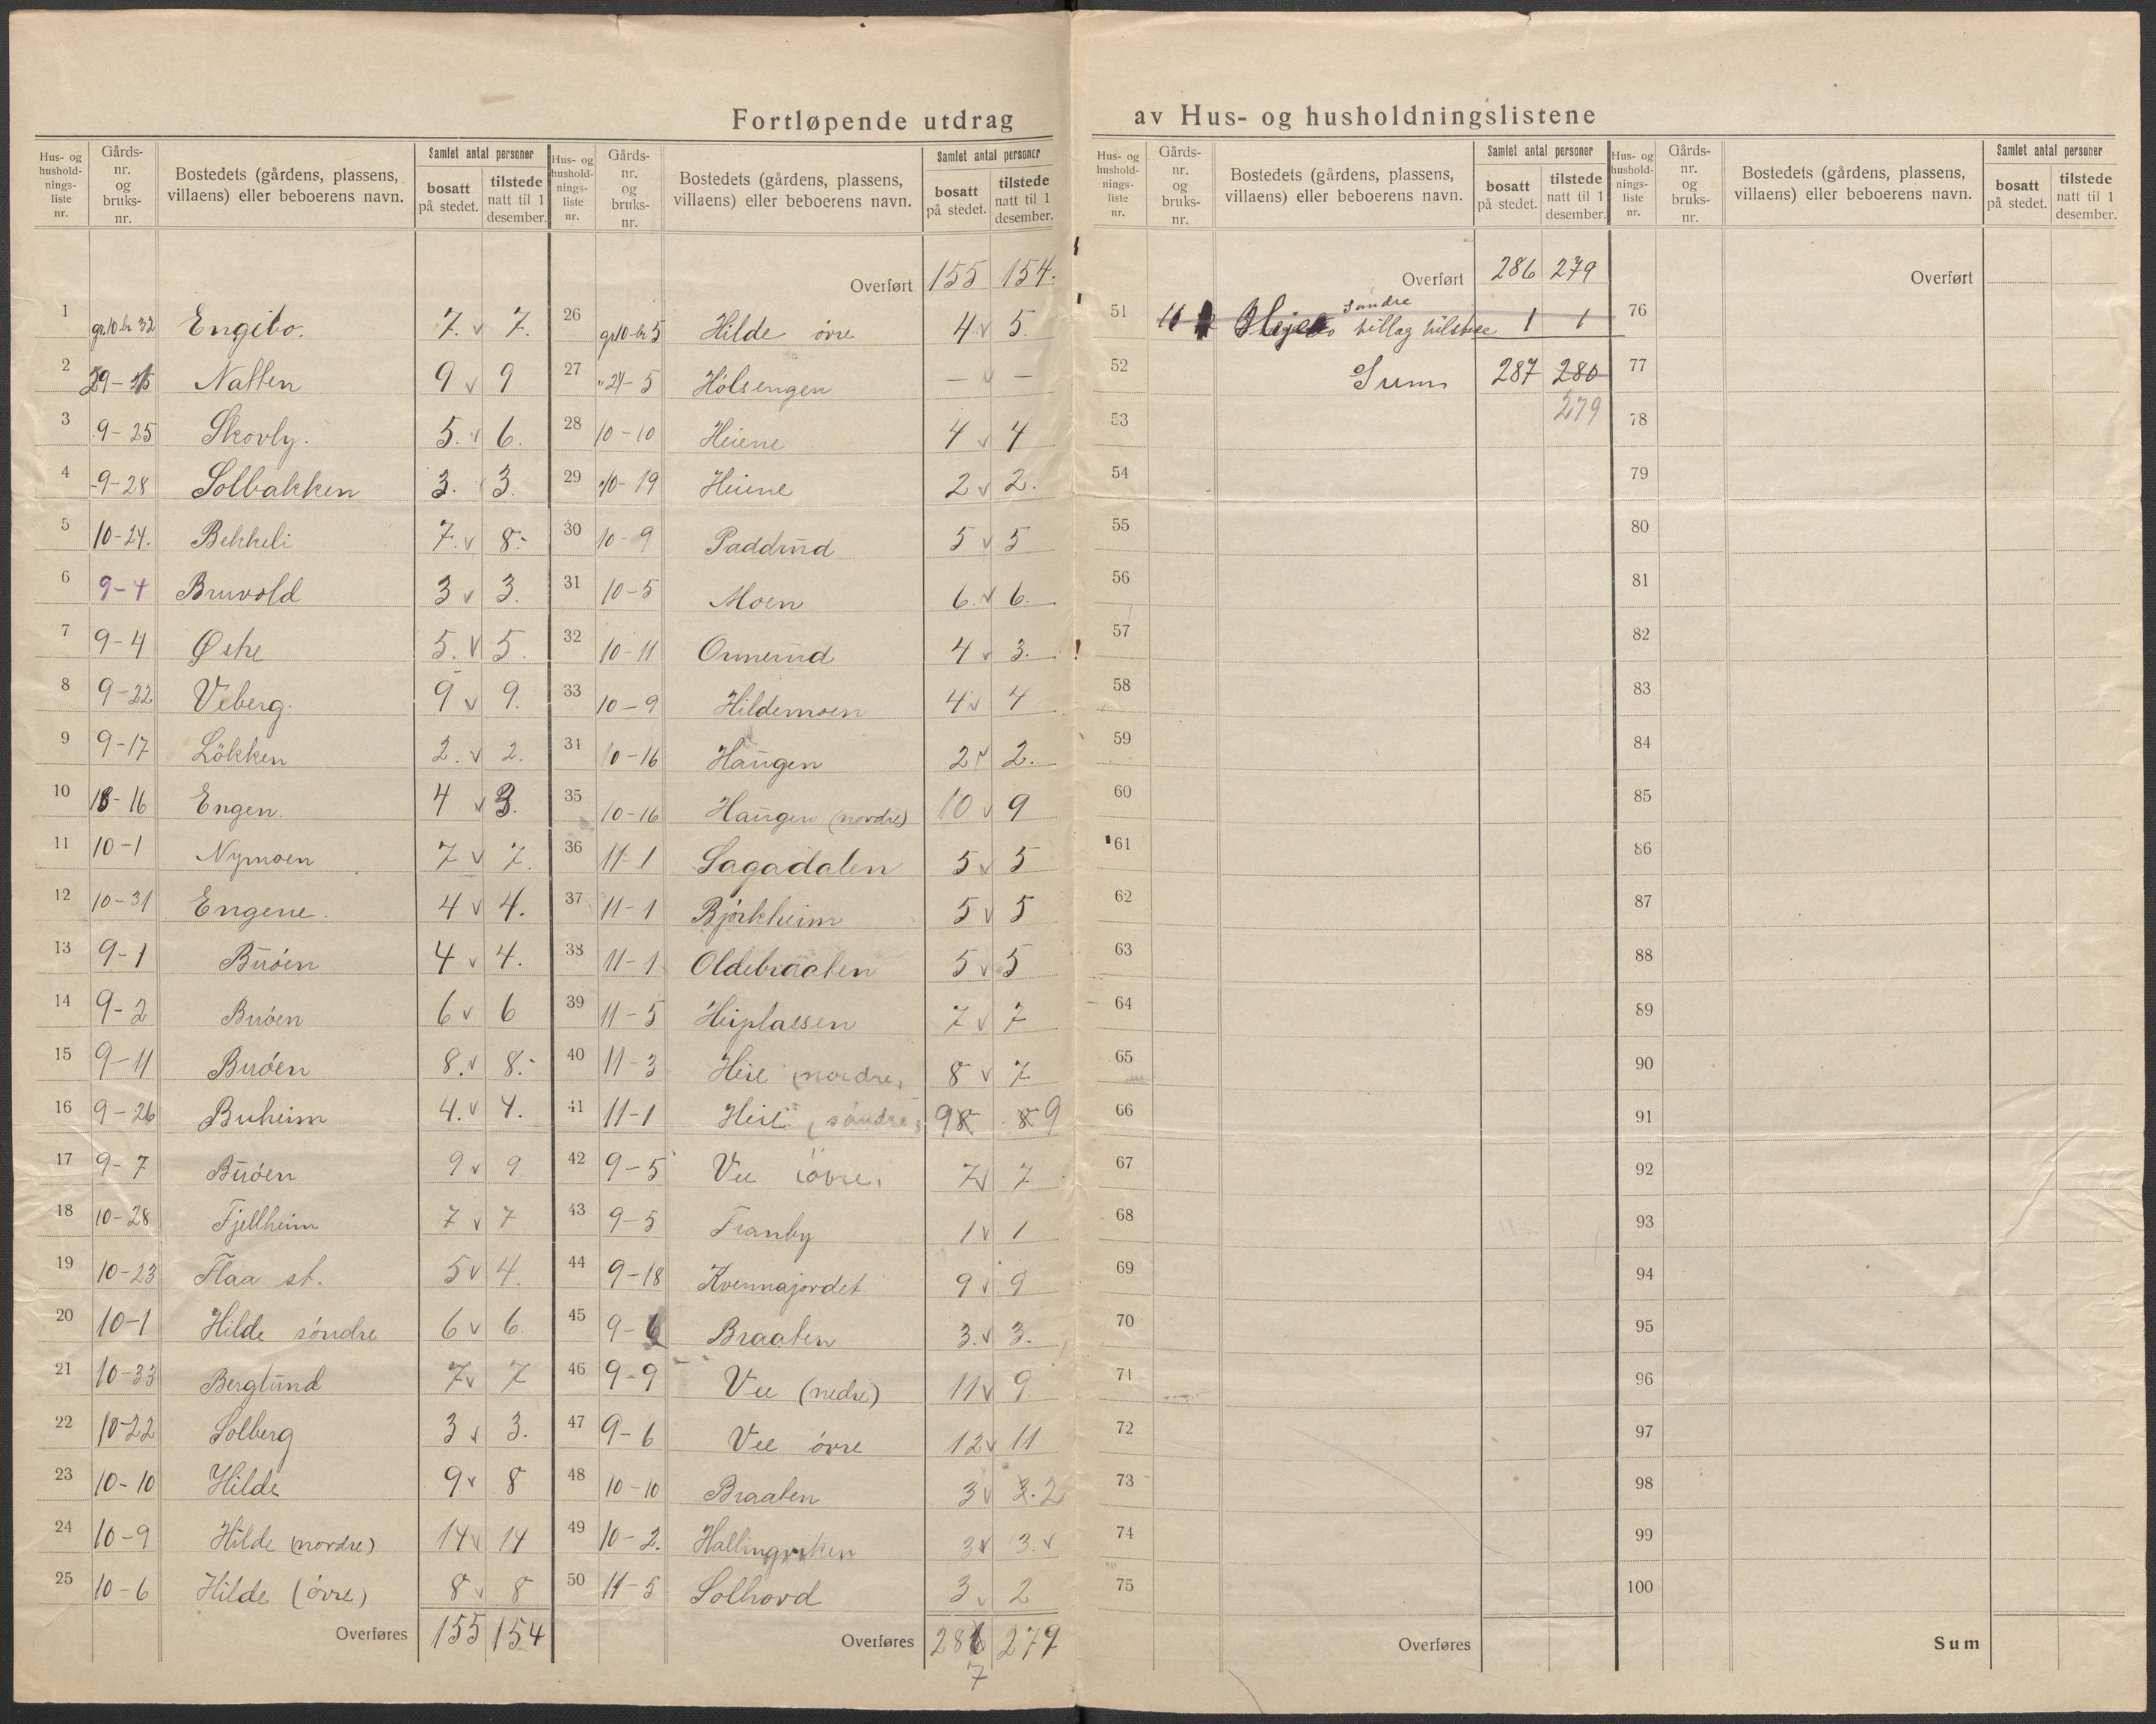 Fortløpende utdrag av Hus- og husholdningslistene
Hus- og hushold-nings-liste nr. Gårds-nr. og bruks-nr. Bostedets (gårdens, plassens, villaens) eller beboerens navn. Samlet antal personer bosatt på stedet. tilstede natt til 1 desember.
1 gr.10 br 32 Engibo. 7. v 7.
2 Natten 9 v 9
3 9-25 Skovly. 5. v 6.
4 9-28 Solbakken 3. v 3.
5 10-24. Bekkeli 7. v 8.
6 9-4 Bruvold 3 v 3.
7 9-4 Øske 5. v 5.
8 9-22 Veberg. 9 v 9.
9 9-17 Lökken 2. v 2.
10 18-16 Engen. 4 v 3.
11 10-1 Nymoen 7 v 7.
12 10-31 Engene. 4 v 4.
13 9-1 Buóen 4 v 4.
14 9-2 Buóen 6 v 6
15 9-11 Buóen 8. v 8.
16 9-26 Buheim 4. v 4.
17 9-7 Buóen 9 v 9.
18 10-28 Fjellheim 7 v 7
19 10-23 Flaa st. 5 v 4.
20 10-1 Hilde söndre 6 v 6
21 10-33 Berglund 7 v 7
22 10-22 Solberg 3 v 3.
23 10-10 Hilde 9 v 8
24 10-9 Hilde (nordre) 14 v 14
25 10-6 Hilde (övre) 8 v 8
Overføres 155 154
Hus- og hushold-nings-liste nr. Gårds-nr. og bruks-nr. Bostedets (gårdens, plassens, villaens) eller beboerens navn. Samlet antal personer bosatt på stedet. tilstede natt til 1 desember.
Overført 155 154.
26 gr10-br5 Hilde övre 4 v 5.
27 " 24-5 Hólsengen — v —
28 10-10 Heiene 4 v 4
29 10-19 Heiene 2 v 2.
30 10-9 Paddrud 5 v 5
31 10-5 Moen 6. v 6.
32 10-11 Ormerud 4 v 3.
33 10-9 Hildemoen 4 v 4
34 10-16 Haugen 2 v 2.
35 10-16 Haugen (nordre) 10 v 9
36 11-1 Sagadalen 5 v 5
37 11-1 Björkheim 5 v 5
38 11-1 Oldebraaten 5 v 5
39 11-5 Heiplassen 7 v 7
40 11-3 Heie (nordre) 8 v 7
41 11-1 Heie (söndre) 98 8 9
42 9-5 Vee (övre) 7 v 7
43 9-5 Franby 1 v 1
44 9-18 Kvennajordet 9 v 9
45 9-6 Braaten 3. v 3.
46 9-9 Vee (nedre) 11 v 9.
47 9-6 Vee övre 12 v 11
48 10-10 Braaten 3 v 3. 2
49 10-2. Hallingreken 3 v 3. v
50 11-5 Solhovd 3 v 2
Overføres 286 279
7
Hus- og hushold-nings-liste nr. Gårds-nr. og bruks-nr. Bostedets (gårdens, plassens, villaens) eller beboerens navn. Samlet antal personer bosatt på stedet. tilstede natt til 1 desember.
Overført 286 279
51 11 Söndre tillag 1 1
52 Sum 287 280
53 279
54
55
56
57
58
59
60
61
62
63
64
65
66
67
68
69
70
71
72
73
74
75
Overføres
Hus- og hushold-nings-liste nr. Gårds-nr. og bruks-nr. Bostedets (gårdens, plassens, villaens) eller beboerens navn. Samlet antal personer bosatt på stedet. tilstede natt til 1 desember.
Overført
76
77
78
79
80
81
82
83
84
85
86
87
88
89
90
91
92
93
94
95
96
97
98
99
100
Sum